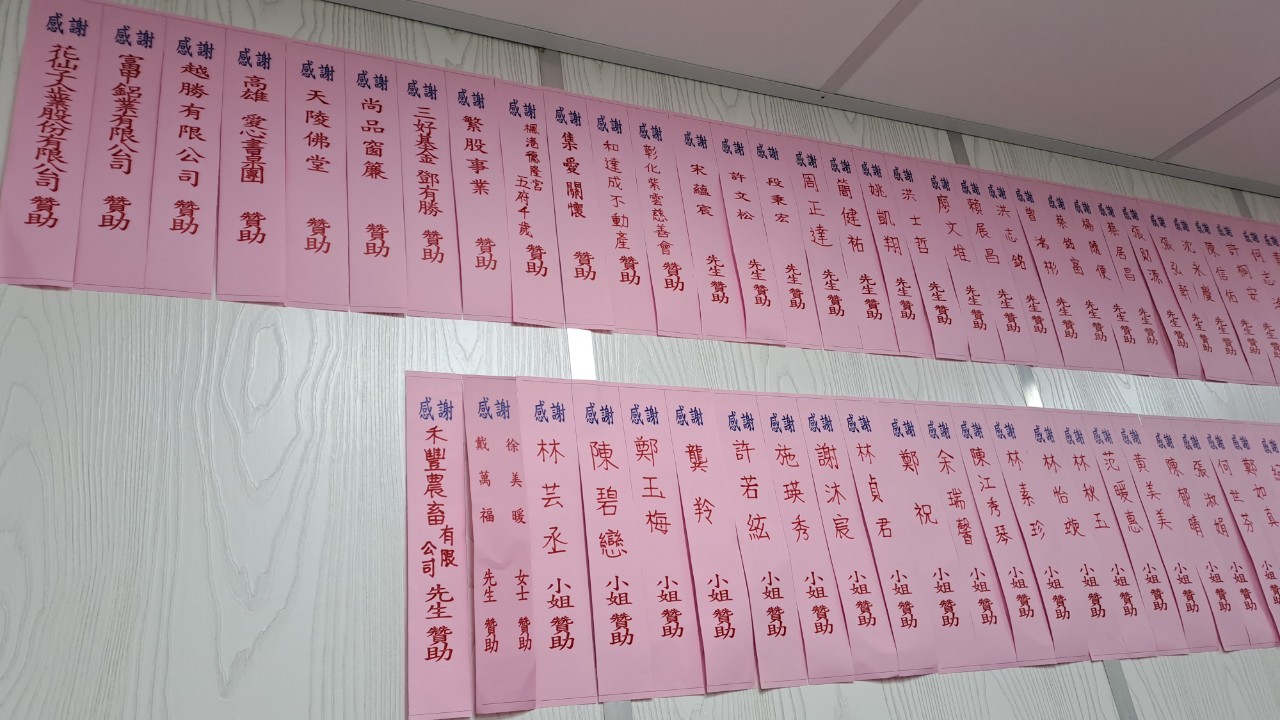 感謝 花仙子企業股份有限公司 贊助
感謝 富甲鋁業有限公司 贊助
感謝 越勝有限公司 贊助
感謝 高雄 愛心畫圃 贊助
感謝 天陵佛堂 贊助
感謝 尚品窗簾 贊助
感謝 三好基金 鄧有勝 贊助
感謝 繁殷事業 贊助
感謝 楓港儒隆宮 五府千歲 贊助
感謝 集愛關懷 贊助
感謝 和達成不動產 贊助
感謝 彰化紫雲慈善會 贊助
感謝 宋蘊宸 先生 贊助
感謝 許文松 先生 贊助
感謝 段秉宏 先生 贊助
感謝 周正達 先生 贊助
感謝 簡健祐 先生 贊助
感謝 姚凱翔 先生 贊助
感謝 洪士哲 先生 贊助
感謝 廖文堆 先生 贊助
感謝 賴展昌 先生 贊助
感謝 洪志銘 先生 贊助
感謝 曾鴻彬 先生 贊助
感謝 蔡銘富 先生 贊助
感謝 楊隆便 先生 贊助
感謝 蔡居昌 先生 贊助
感謝 張財源 先生 贊助
感謝 張弘軒 先生 贊助
感謝 沈永慶 先生 贊助
感謝 陳信佑 先生 贊助
感謝 許桐安 先生 贊助
感謝 何志 先生 贊助
感謝 禾豐農畜有限公司 先生 贊助
感謝 徐美暖 女士 贊助
戴萬福 先生 贊助
感謝 林芸丞 小姐 贊助
感謝 陳碧戀 小姐 贊助
感謝 鄭玉梅 小姐 贊助
感謝 龔羚 小姐 贊助
感謝 許若絃 小姐 贊助
感謝 施瑛秀 小姐 贊助
感謝 謝沐宸 小姐 贊助
感謝 林貞君 小姐 贊助
感謝 鄭祝 小姐 贊助
感謝 余瑞馨 小姐 贊助
感謝 陳江秀琴 小姐 贊助
感謝 林素珍 小姐 贊助
感謝 林怡 小姐 贊助
感謝 林秋五 小姐 贊助
感謝 范暖惠 小姐 贊助
感謝 黃美美 小姐 贊助
感謝 陳郁晴 小姐 贊助
感謝 張淑娟 小姐 贊助
感謝 何芸芬 小姐 贊助
感謝 鄭如真 小姐 贊助